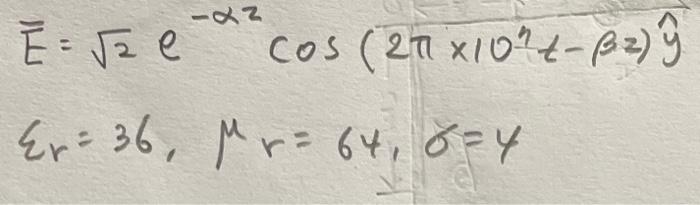 Ē = √2 e^{-αz} cos(2π×10⁷t - βz) ŷ
εr = 36, μr = 64, σ = 4